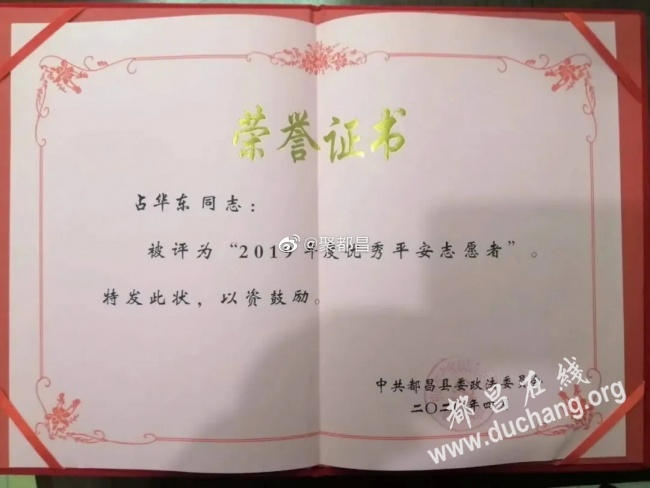 荣誉证书
占华东同志：
被评为“2019年度优秀平安志愿者”。
@聚都昌
特发此状，以资鼓励。
中共都昌县委政法委员会
二〇二〇年四月
都昌在线
www.duchang.org